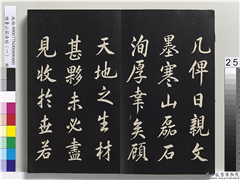 凡俾日親文
墨寒山磊石
洵厚幸矣顧
天地之生材
甚夥未必盡
見收於世若
25